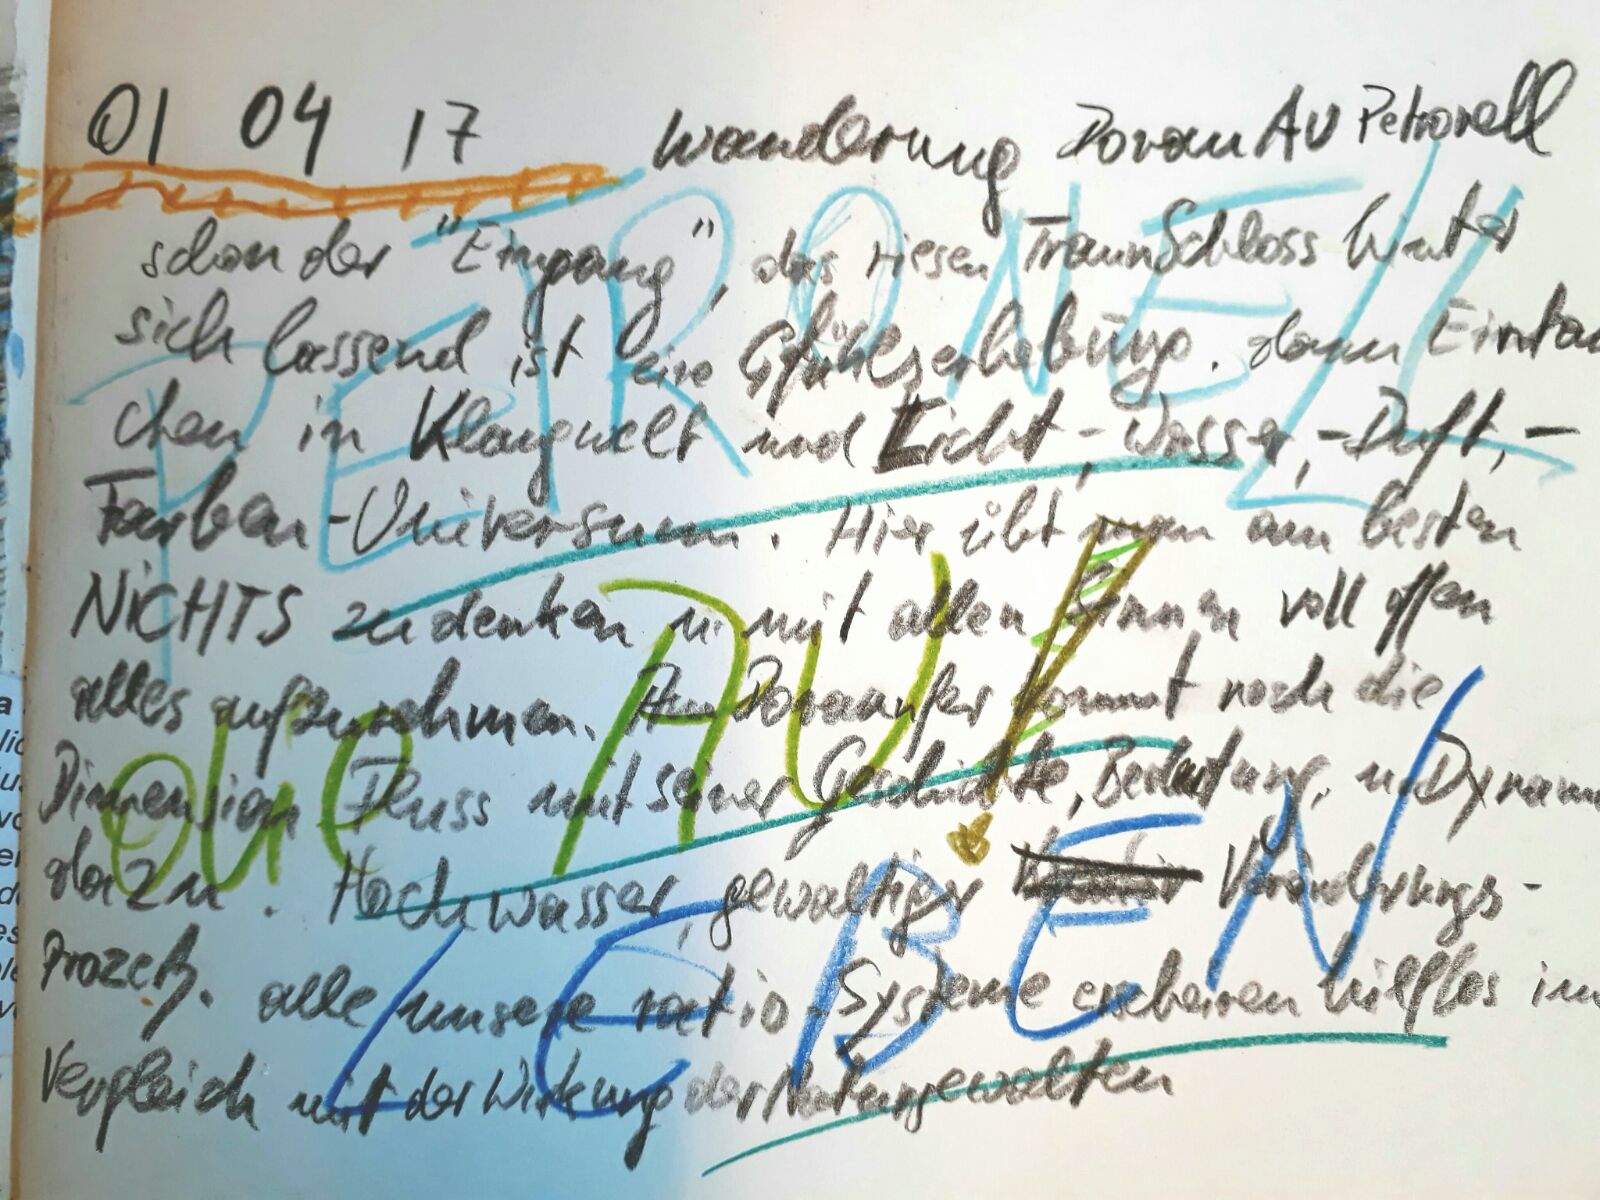 01 04 17 Wanderung DonauAU Petronell
schon der "Eingang", das riesen TraunSchloss hinter
sich lassend ist eine Gfühlserhebung. dann Eintau
chen in Klangwelt und Licht-, Wasser,- Duft,-
Farben-Universum. Hier übt man am besten
NiCHTS zu denken u. mit allen Sinnen voll offen
alles aufzunehmen. Am Donauufer kommt noch die
Dimension Fluss mit seiner Geschichte, Bedeutung, u. Dynami
dazu. Hochwasser, gewaltiger Veränderungs-
Prozeß. alle unsere ratio-Systeme erscheinen hilflos im
Vergleich mit der Wirkung der Naturgewalten
PETRONELL
AU!
LEBEN